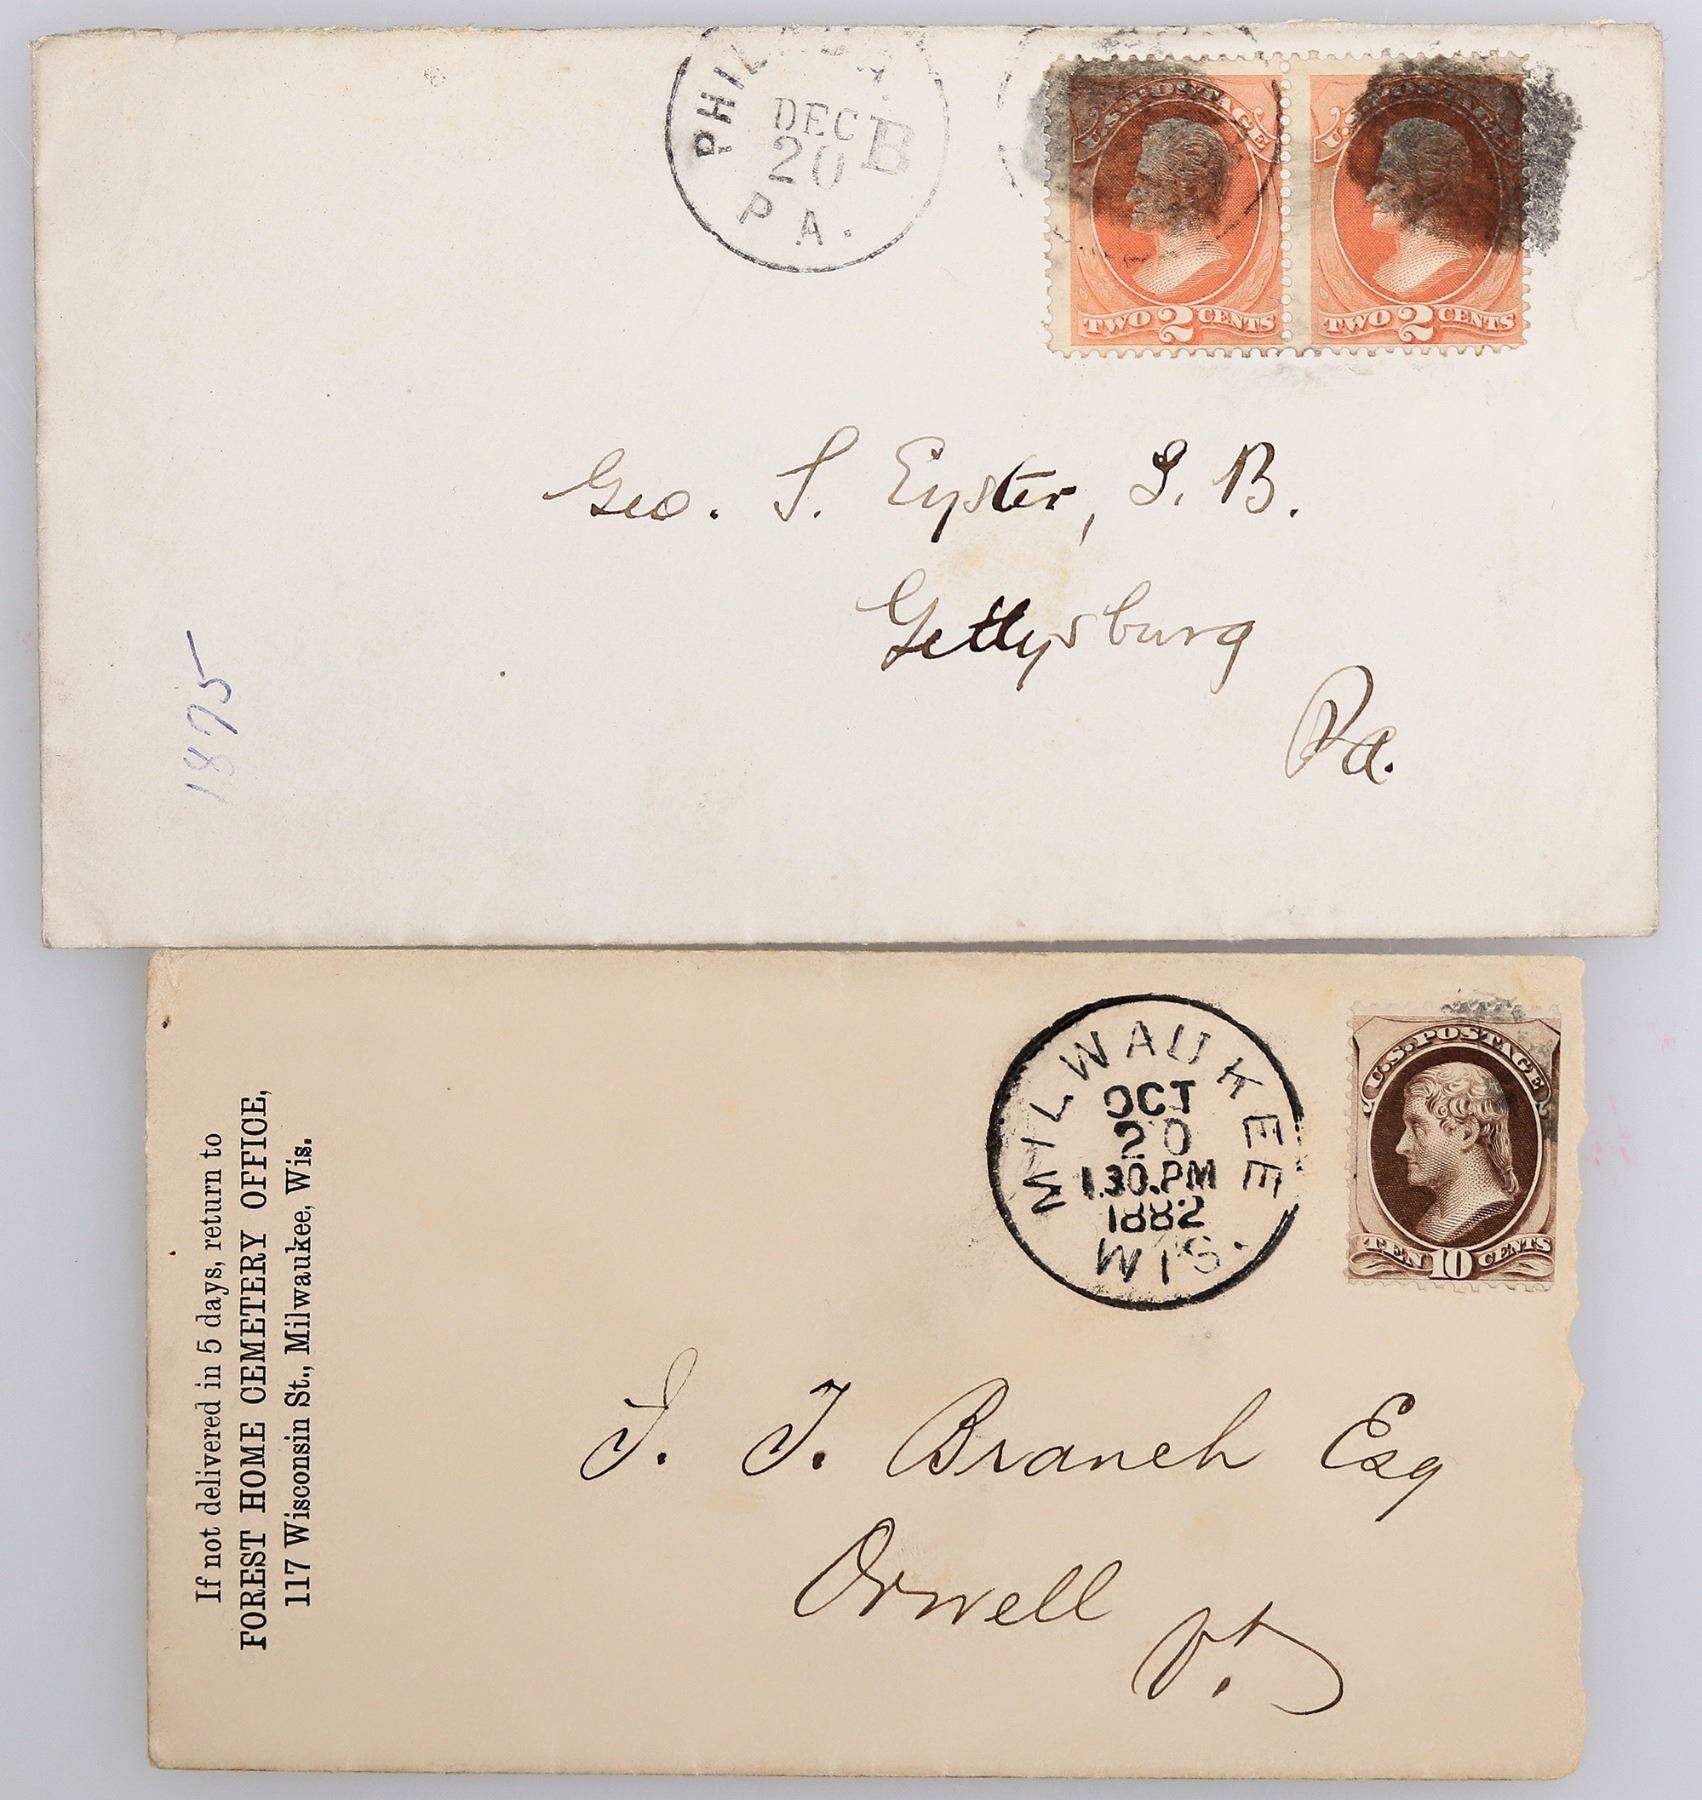 PHILAD'A.
DEC B
20
PA.
U.S. POSTAGE
TWO 2 CENTS
U.S. POSTAGE
TWO 2 CENTS
Geo. S. Eyster, S. B.
Gettysburg
Pa.
1875
If not delivered in 5 days, return to
FOREST HOME CEMETERY OFFICE,
117 Wisconsin St., Milwaukee, Wis.
MILWAUKEE
OCT
20
1.30.PM
1882
WIS.
U.S. POSTAGE
TEN 10 CENTS
T. Branch Esq
Orwell
Vt.